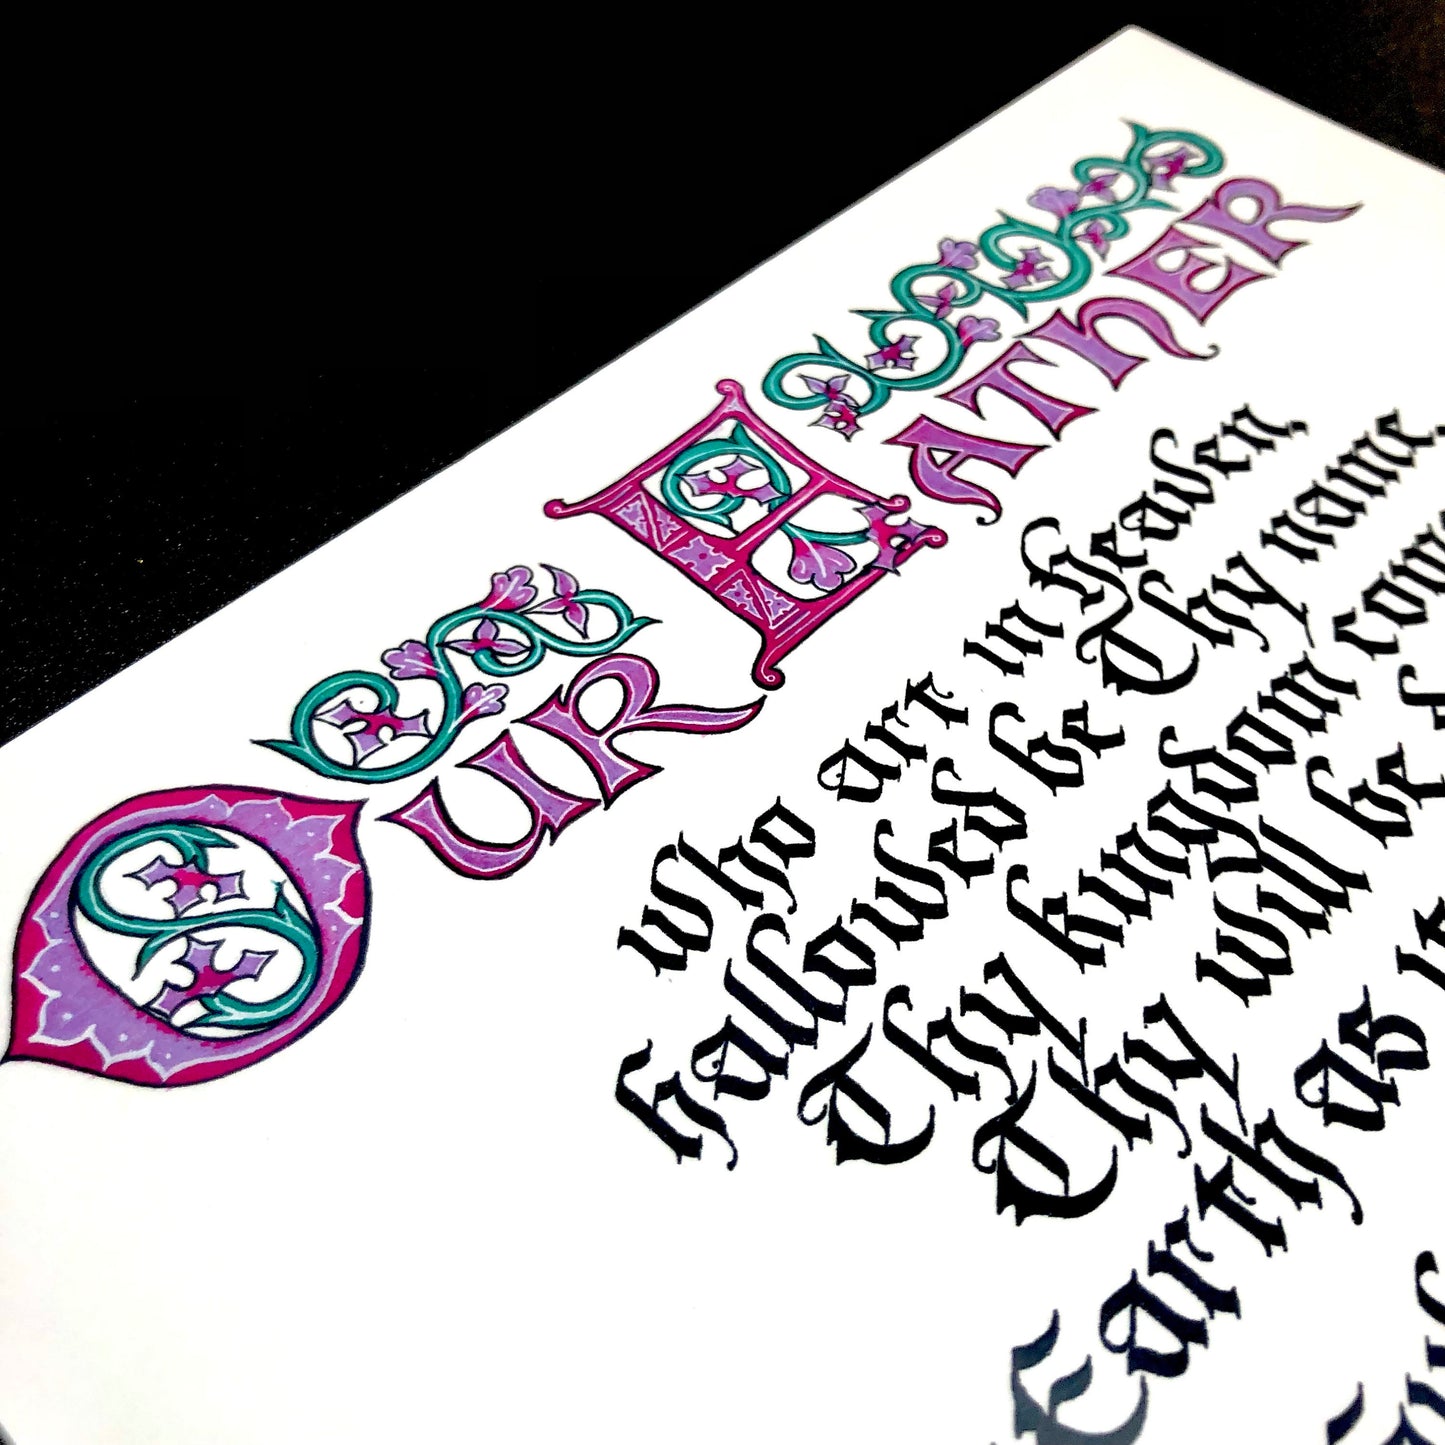 OUR FATHER
Who art in heaven,
hallowed be Thy name,
Thy kingdom
Thy will be
Earth as it